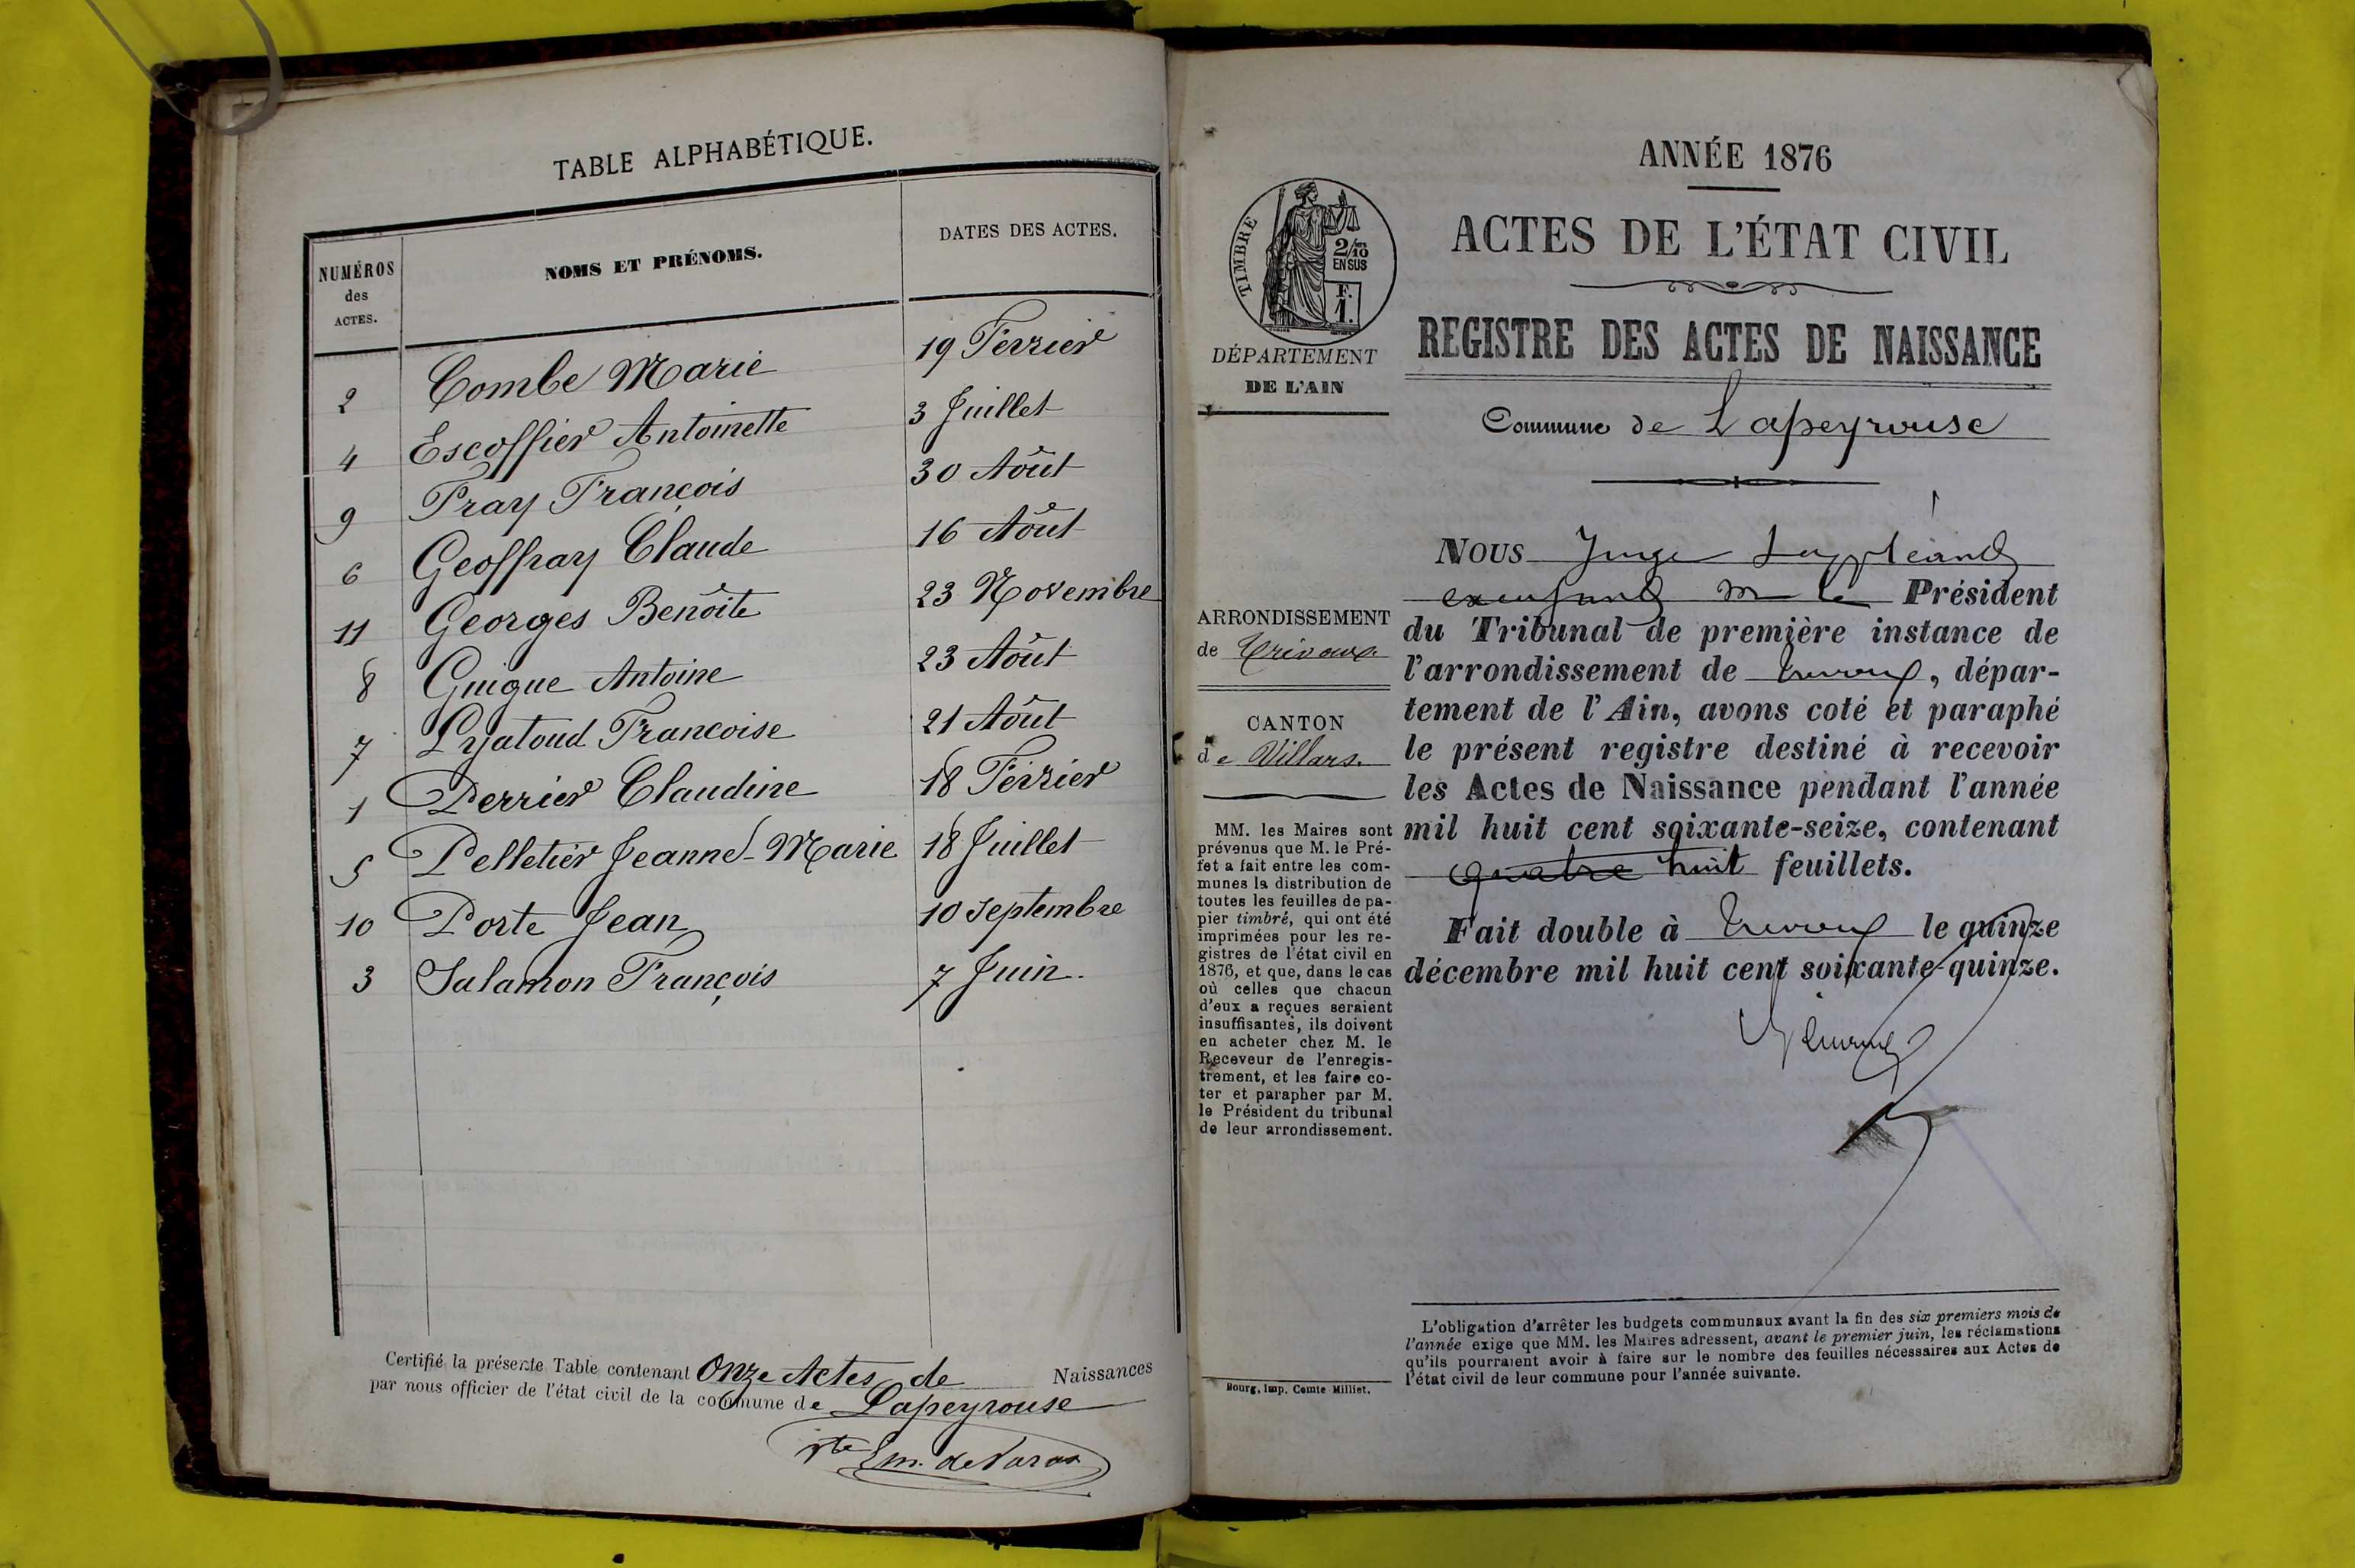 TABLE ALPHABÉTIQUE.
NUMÉROS des ACTES. NOMS ET PRÉNOMS. DATES DES ACTES.
2 Combe Marie 19 Février
4 Escoffier Antoinette 3 Juillet
9 Fray François 30 Aôut
6 Geoffray Claude 16 Aôut
11 Georges Benôite 23 Novembre
8 Guigue Antoine 23 Aôut
7 Lyatoud Francoise 21 Aôut
1 Perrier Claudine 18 Février
5 Pelletier Jeanne-Marie 18 Juillet
10 Porte Jean 10 Septembre
3 Salamon François 7 Juin.
Certifié la présente Table contenant Onze Actes de Naissances
par nous officier de l'état civil de la commune de Lapeyrouse
Vte Em. de Varax
TIMBRE
2/10 EN SUS
F. 1.
DÉPARTEMENT
DE L'AIN
ARRONDISSEMENT
de Trévoux
CANTON
de Villars.
MM. les Maires sont
prévenus que M. le Pré-
fet a fait entre les com-
munes la distribution de
toutes les feuilles de pa-
pier timbré, qui ont été
imprimées pour les re-
gistres de l'état civil en
1876, et que, dans le cas
où celles que chacun
d'eux a reçues seraient
insuffisantes, ils doivent
en acheter chez M. le
Receveur de l'enregis-
trement, et les faire co-
ter et parapher par M.
le Président du tribunal
de leur arrondissement.
Bourg, Imp. Comte Milliet.
ANNÉE 1876
ACTES DE L'ÉTAT CIVIL
REGISTRE DES ACTES DE NAISSANCE
Commune de Lapeyrouse
NOUS Juge Suppléant
M le Président
du Tribunal de première instance de
l'arrondissement de Trévoux, dépar-
tement de l'Ain, avons coté et paraphé
le présent registre destiné à recevoir
les Actes de Naissance pendant l'année
mil huit cent soixante-seize, contenant
quatre huit feuillets.
Fait double à Trévoux le quinze
décembre mil huit cent soixante-quinze.
L'obligation d'arrêter les budgets communaux avant la fin des six premiers mois de
l'année exige que MM. les Maires adressent, avant le premier juin, les réclamations
qu'ils pourraient avoir à faire sur le nombre des feuilles nécessaires aux Actes de
l'état civil de leur commune pour l'année suivante.